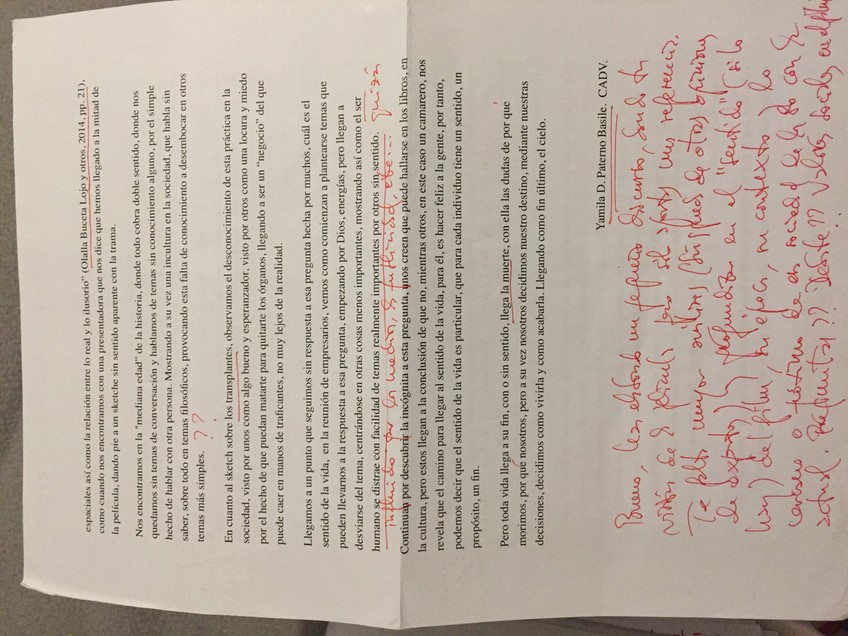 espaciales así como la relación entre lo real y lo ilusorio" (Olalla Buceta Lojo y otros, 2014, pp. 21),
como cuando nos encontramos con una presentadora que nos dice que hemos llegado a la mitad de
la película, dando pie a un sketche sin sentido aparente con la trama.
Nos encontramos en la "mediana edad" de la historia, donde todo cobra doble sentido, donde nos
quedamos sin temas de conversación y hablamos de temas sin conocimiento alguno, por el simple
hecho de hablar con otra persona. Mostrando a su vez una incultura en la sociedad, que habla sin
saber, sobre todo en temas filosóficos, provocando esta falta de conocimiento a desembocar en otros
temas más simples. ??
En cuanto al sketch sobre los transplantes, observamos el desconocimiento de esta práctica en la
sociedad, visto por unos como algo bueno y esperanzador, visto por otros como una locura y miedo
por el hecho de que puedan matarte para quitarte los órganos, llegando a ser un "negocio" del que
puede caer en manos de traficantes, no muy lejos de la realidad.
Llegamos a un punto que seguimos sin respuesta a esa pregunta hecha por muchos, cuál es el
sentido de la vida, en la reunión de empresarios, vemos como comienzan a plantearse temas que
pueden llevarnos a la respuesta a esa pregunta, empezando por Dios, energías, pero llegan a
desviarse del tema, centrándose en otras cosas menos importantes, mostrando así como el ser
humano se distrae con facilidad de temas realmente importantes por otros sin sentido. quizá
influido por los medios, la publicidad, etc...
Continuan por descubrir la incógnita a esa pregunta, unos creen que puede hallarse en los libros, en
la cultura, pero estos llegan a la conclusión de que no, mientras otros, en este caso un camarero, nos
revela que el camino para llegar al sentido de la vida, para él, es hacer feliz a la gente, por tanto,
podemos decir que el sentido de la vida es particular, que para cada individuo tiene un sentido, un
propósito, un fin.
Pero toda vida llega a su fin, con o sin sentido, llega la muerte, con ella las dudas de por que
morimos, por qué nosotros, pero a su vez nosotros decidimos nuestro destino, mediante nuestras
decisiones, decidimos como vivirla y como acabarla. Llegando como fin último, el cielo.
Yamila D. Paterno Basile. CADV.
Bueno, has elaborado un pequeño discurso, dando tu
visión de la película, pero sin aportar más referencias.
Te falta mayor análisis (después de otras opiniones
de expertos) y profundizar en el "sentido" (si lo
hay) del film, su época, su contexto, lo
o mismo de la sociedad de la con la
actual. Preguntas?? Debate?? Valores sociales, en definitiva